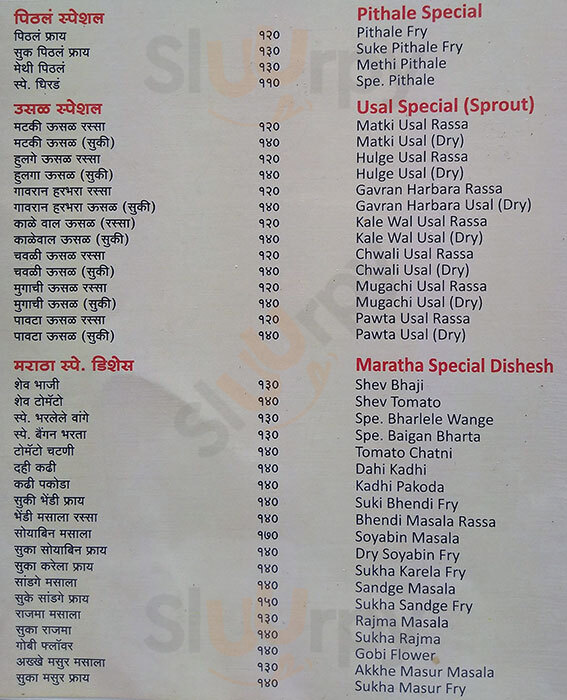 पिठलं स्पेशल Pithale Special
पिठलं फ्राय १२० Pithale Fry
सुक पिठलं फ्राय १३० Suke Pithale Fry
मेथी पिठलं १३० Methi Pithale
स्पे. धिरडं ११० Spe. Pithale
उसळ स्पेशल Usal Special (Sprout)
मटकी ऊसळ रस्सा १२० Matki Usal Rassa
मटकी ऊसळ (सुकी) १४० Matki Usal (Dry)
हुलगे ऊसळ रस्सा १२० Hulge Usal Rassa
हुलगा ऊसळ (सुकी) १४० Hulge Usal (Dry)
गावरान हरभरा रस्सा १२० Gavran Harbara Rassa
गावरान हरभरा ऊसळ (सुकी) १४० Gavran Harbara Usal (Dry)
काळे वाल ऊसळ (रस्सा) १२० Kale Wal Usal Rassa
काळेवाल ऊसळ (सुकी) १४० Kale Wal Usal (Dry)
चवळी ऊसळ रस्सा १२० Chwali Usal Rassa
चवळी ऊसळ (सुकी) १४० Chwali Usal (Dry)
मुगाची ऊसळ रस्सा १२० Mugachi Usal Rassa
मुगाची ऊसळ (सुकी) १४० Mugachi Usal (Dry)
पावटा ऊसळ रस्सा १२० Pawta Usal Rassa
पावटा ऊसळ (सुकी) १४० Pawta Usal (Dry)
मराठा स्पे. डिशेस Maratha Special Dishesh
शेव भाजी १३० Shev Bhaji
शेव टोमॅटो १४० Shev Tomato
स्पे. भरलेले वांगे १३० Spe. Bharlele Wange
स्पे. बैंगन भरता १३० Spe. Baigan Bharta
टोमॅटो चटणी १४० Tomato Chatni
दही कढी १४० Dahi Kadhi
कढी पकोडा १४० Kadhi Pakoda
सुकी भेंडी फ्राय १४० Suki Bhendi Fry
भेंडी मसाला रस्सा १४० Bhendi Masala Rassa
सोयाबिन मसाला १७० Soyabin Masala
सुका सोयाबिन फ्राय १४० Dry Soyabin Fry
सुका करेला फ्राय १४० Sukha Karela Fry
सांडगे मसाला १४० Sandge Masala
सुके सांडगे फ्राय १५० Sukha Sandge Fry
राजमा मसाला १३० Rajma Masala
सुका राजमा १४० Sukha Rajma
गोबी फ्लॉवर १४० Gobi Flower
अख्खे मसुर मसाला १३० Akkhe Masur Masala
सुका मसुर फ्राय १४० Sukha Masur Fry
Sluurpy
Sluurpy
Sluurpy